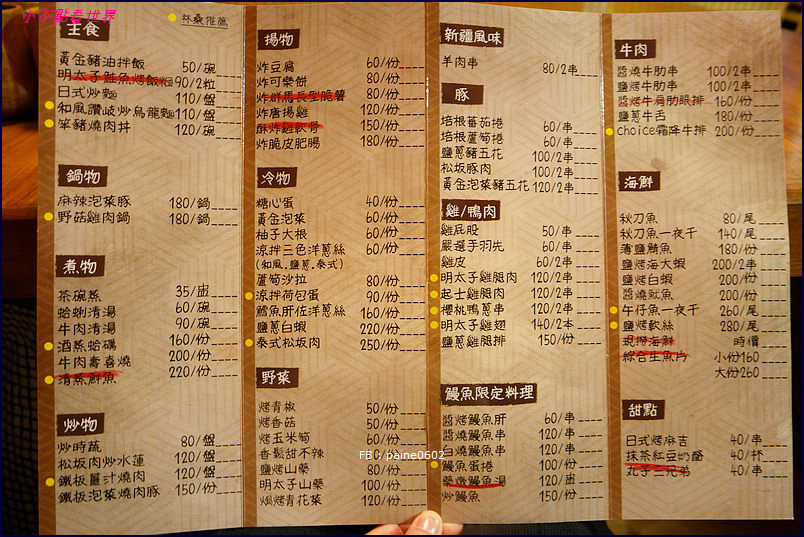 小不點看世界
林桑推薦
主食
黃金豬油拌飯 50/碗
明太子鮭魚烤飯糰 90/2粒
日式炒麵 110/盤
和風讚岐炒烏龍麵 110/盤
笨豬燒肉丼 120/碗
鍋物
麻辣泡菜豚 180/鍋
野菇雞肉鍋 180/鍋
煮物
茶碗蒸 35/盅
蛤蜊清湯 60/碗
牛肉清湯 90/碗
酒蒸蛤蠣 160/份
牛肉壽喜燒 200/份
清蒸鮮魚 220/份
炒物
炒時蔬 80/盤
松坂肉炒水蓮 120/盤
鐵板薑汁燒肉 120/份
鐵板泡菜燒肉豚 150/份
揚物
炸豆腐 60/份
炸可樂餅 80/份
炸群馬長型脆薯 80/份
炸唐揚雞 120/份
酥炸雞軟骨 150/份
炸脆皮肥腸 180/份
冷物
糖心蛋 40/份
黃金泡菜 60/份
柚子大根 60/份
涼拌三色洋蔥絲 60/份
(和風.鹽蔥.泰式)
蘆筍沙拉 80/份
涼拌荷包蛋 90/份
鱈魚肝佐洋蔥絲 160/份
鹽蔥白蝦 220/份
泰式松坂肉 250/份
野菜
烤青椒 50/份
烤香菇 50/份
烤玉米筍 60/份
香鬆甜不辣 60/份
鹽烤山藥 80/份
明太子山藥 100/份
焗烤青花菜 120/份
新疆風味
羊肉串 80/2串
豚
培根番茄捲 60/串
培根蘆筍捲 60/串
鹽蔥豬五花 100/2串
松坂豚肉 100/2串
黃金泡菜豬五花 120/2串
雞/鴨肉
雞屁股 50/串
嚴選手羽先 60/串
雞皮 60/2串
明太子雞腿肉 120/2串
起士雞腿肉 120/2串
櫻桃鴨蔥串 120/2串
明太子雞翅 140/2本
鹽蔥雞腿排 150/份
鰻魚限定料理
醬烤鰻魚肝 60/串
醬燒鰻魚串 120/串
白燒鰻魚串 120/串
鰻魚蛋捲 100/份
藥燉鰻魚湯 120/盅
炒鰻魚 150/份
牛肉
醬燒牛肋串 100/2串
鹽烤牛肋串 100/2串
醬燒牛肩肋眼排 160/份
鹽蔥牛舌 180/份
choice霜降牛排 200/份
海鮮
秋刀魚 80/尾
秋刀魚一夜干 140/尾
薄鹽鯖魚 180/份
鹽烤海大蝦 200/2串
鹽烤白蝦 200/份
醬燒魷魚 200/份
午仔魚一夜干 260/尾
鹽烤軟絲 280/尾
現撈海鮮 時價
綜合生魚片 小份160
大份260
甜點
日式烤麻吉 40/串
抹茶紅豆奶酪 40/杯
丸子三兄弟 40/串
FB: paine0602